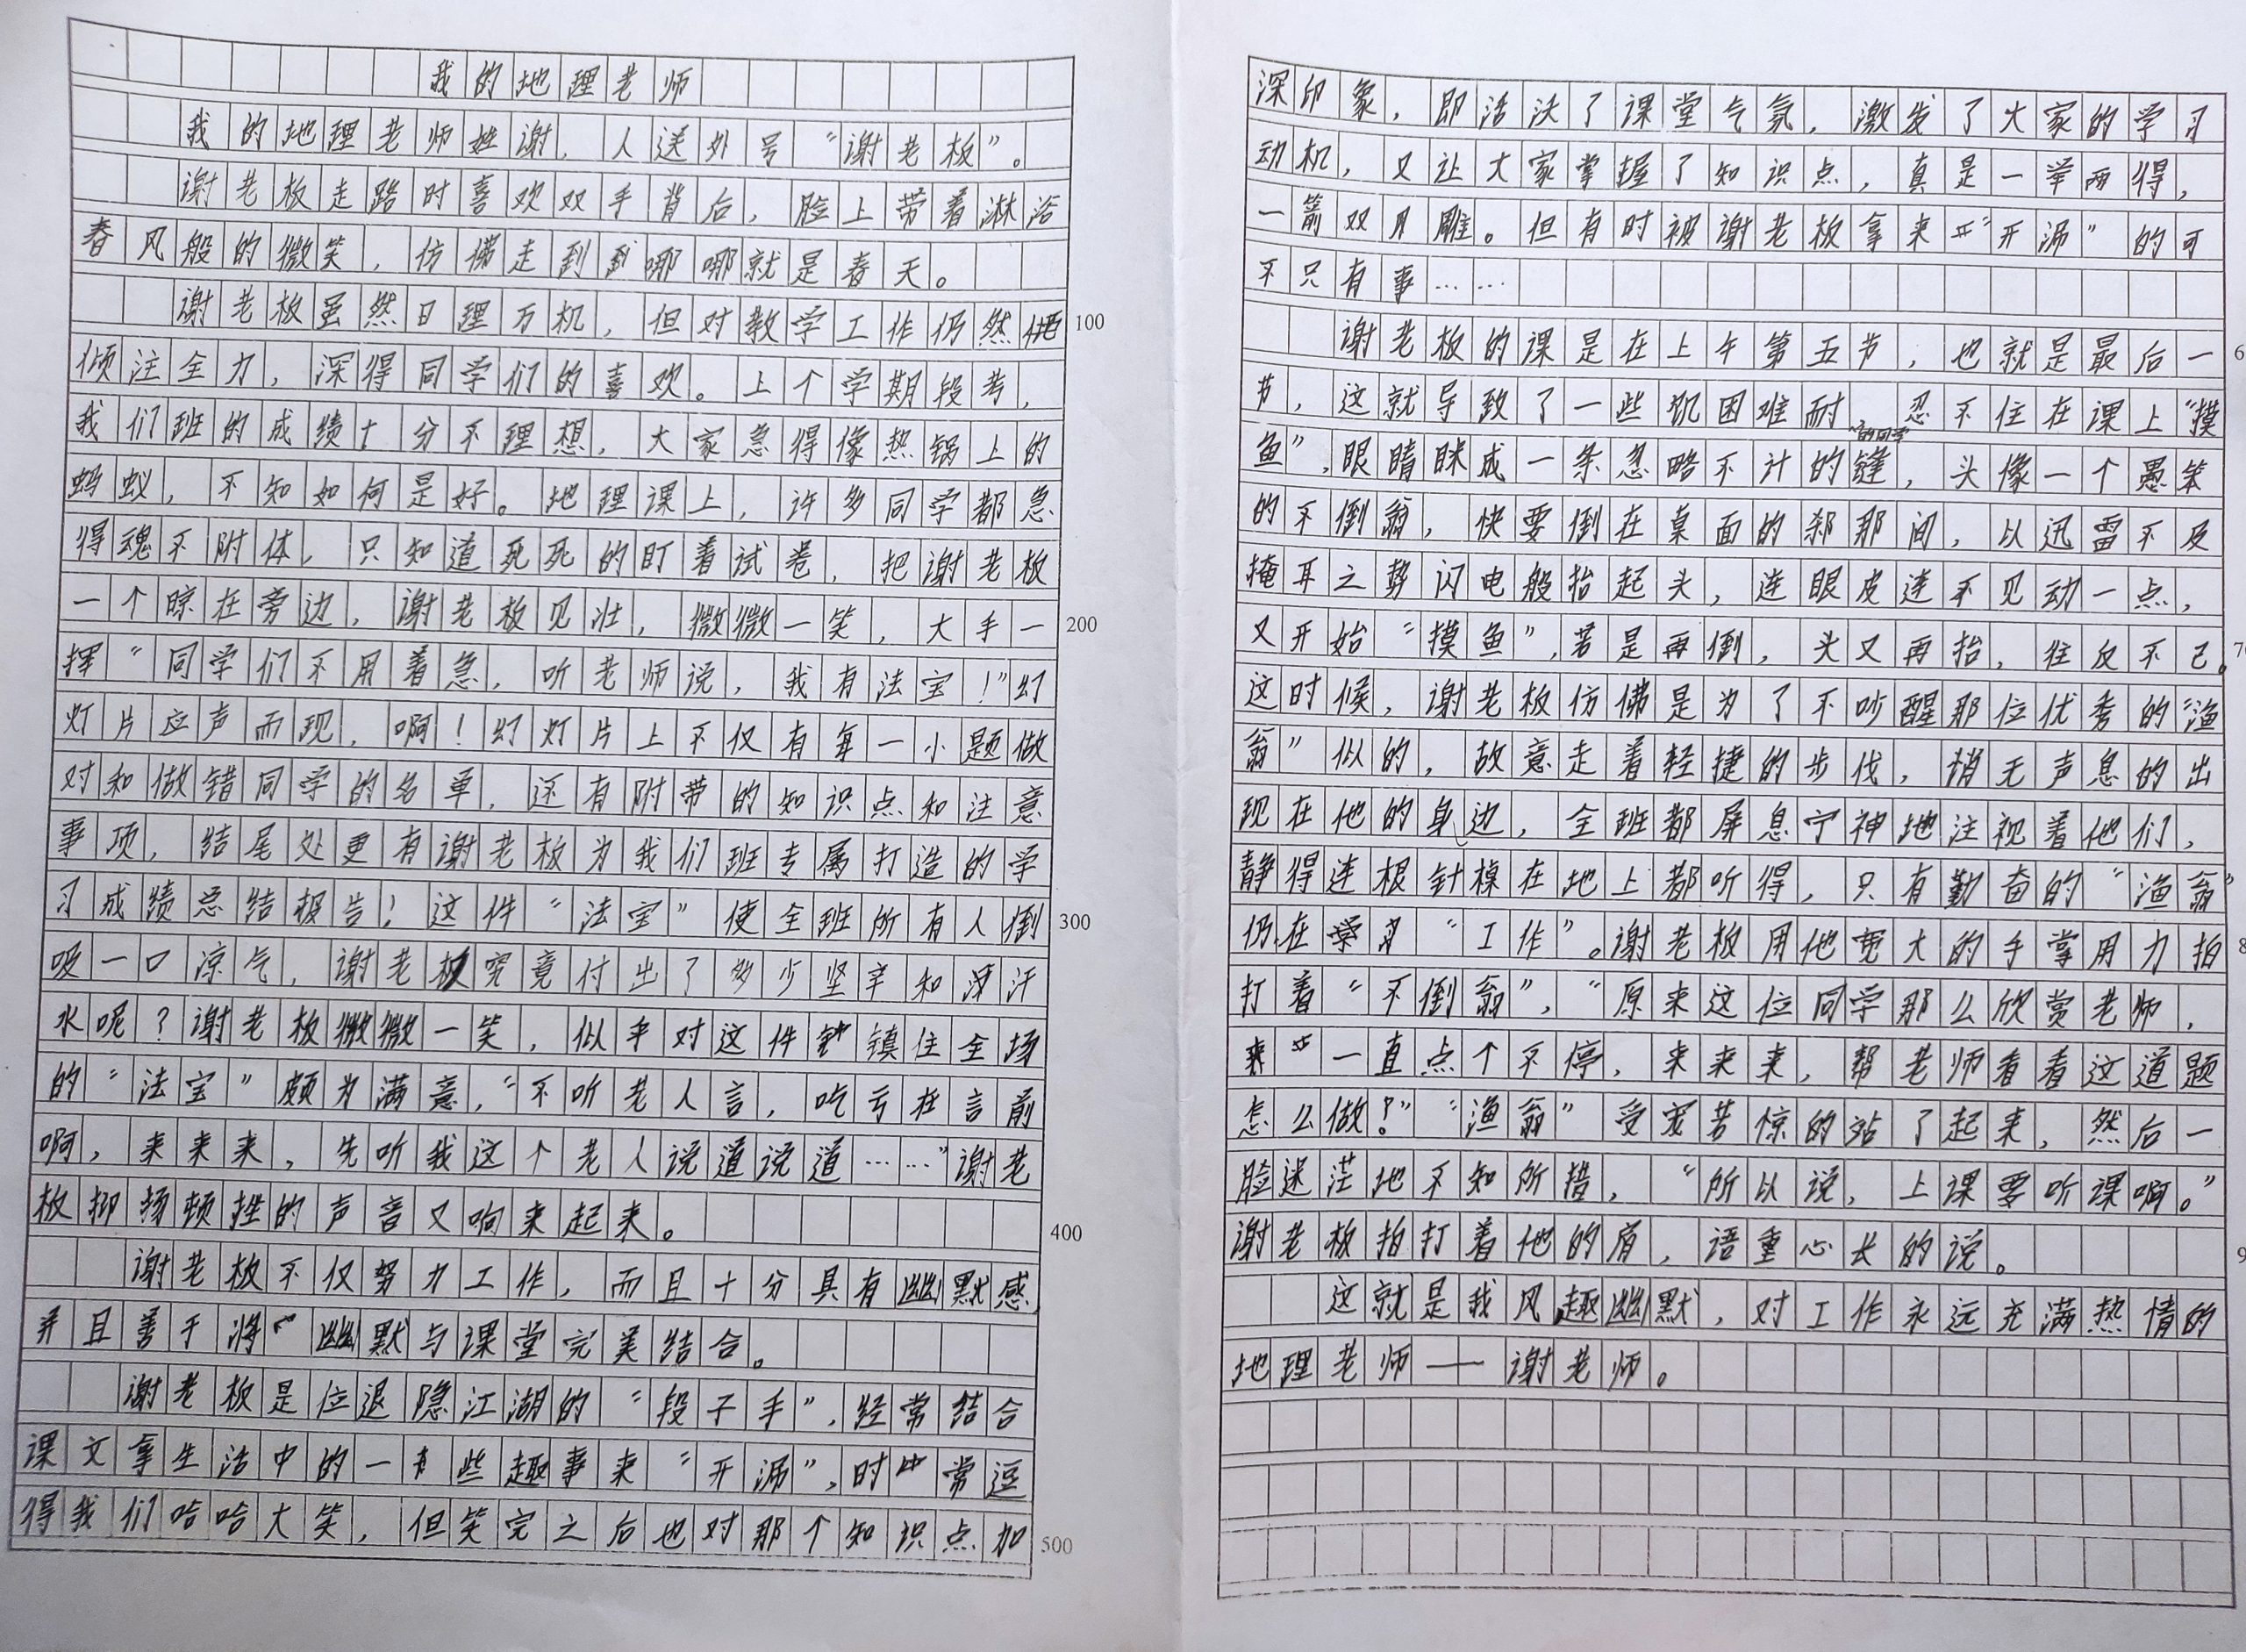 我的地理老师
我的地理老师姓谢，人送外号“谢老板”。
谢老板走路时喜欢双手背后，脸上带着淋浴
春风般的微笑，仿佛走到哪哪就是春天。
谢老板虽然日理万机，但对教学工作仍然
倾注全力，深得同学们的喜欢。上个学期段考，
我们班的成绩十分不理想，大家急得像热锅上的
蚂蚁，不知如何是好。地理课上，许多同学都急
得魂不附体，只知道死死的盯着试卷，把谢老板
一个晾在旁边，谢老板见壮，微微一笑，大手一
挥“同学们不用着急，听老师说，我有法宝！”幻
灯片应声而现，啊！幻灯片上不仅有每一小题做
对和做错同学的名单，还有附带的知识点和注意
事项，结尾处更有谢老板为我们班专属打造的学
习成绩总结报告！这件“法宝”使全班所有人倒
吸一口凉气，谢老板究竟付出了多少坚辛和汗
水呢？谢老板微微一笑，似乎对这件镇住全场
的“法宝”颇为满意，“不听老人言，吃亏在言前
啊，来来来，先听我这个老人说道说道……”谢老
板抑扬顿挫的声音又响来起来。
谢老板不仅努力工作，而且十分具有幽默感，
并且善于将幽默与课堂完美结合。
谢老板是位退隐江湖的“段子手”，经常结合
课文拿生活中的一些趣事来“开涮”，时常逗
得我们哈哈大笑，但笑完之后也对那个知识点加
深印象，即活沃了课堂气氛，激发了大家的学习
动机，又让大家掌握了知识点，真是一举两得，
一箭双雕。但有时被谢老板拿来“开涮”的可
不只有事……
谢老板的课是在上午第五节，也就是最后一
节，这就导致了一些饥困难耐，忍不住在课上“摸
鱼”的同学，眼睛眯成一条忽略不计的缝，头像一个愚笨
的不倒翁，快要倒在桌面的刹那间，以迅雷不及
掩耳之势闪电般抬起头，连眼皮连不见动一点，
又开始“摸鱼”，若是再倒，头又再抬，往反不已。
这时候，谢老板仿佛是为了不吵醒那位优秀的“渔
翁”似的，故意走着轻捷的步伐，悄无声息的出
现在他的身边，全班都屏息宁神地注视着他们，
静得连根针掉在地上都听得，只有勤奋的“渔翁”
仍在“工作”。谢老板用他宽大的手掌用力拍
打着“不倒翁”，“原来这位同学那么欣赏老师，
一直点个不停，来来来，帮老师看看这道题
怎么做？”“渔翁”受宠若惊的站了起来，然后一
脸迷茫地不知所措，“所以说，上课要听课啊。”
谢老板拍打着他的肩，语重心长的说。
这就是我风趣幽默，对工作永远充满热情的
地理老师——谢老师。
100
200
300
400
500